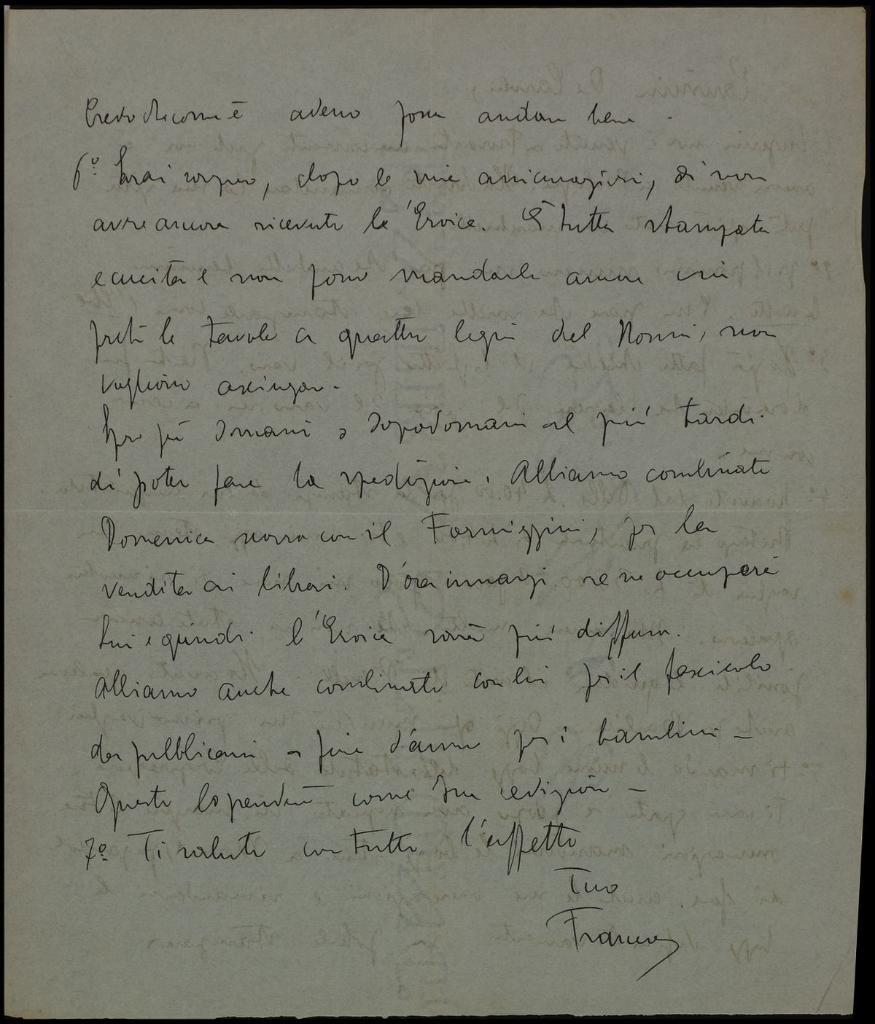 Credo che come è adesso possa andar bene.
6º Sarai sorpreso, dopo le mie assicurazioni, di non
avere ancora ricevuto l'Eroica. È tutta stampata
e cucita e non posso mandarla ancora
perché le tavole a quattro legni del Nonni, non
vogliono asciugare.
Spero già domani o dopodomani al più tardi
di poter fare la spedizione. Abbiamo combinato
Domenica scorsa con il Formiggini, per la
vendita ai librai. D'ora innanzi se ne occuperà
lui e quindi l'Eroica sarà più diffusa.
Abbiamo anche combinato con lui per il fascicolo
da pubblicarsi a fine d'anno per i bambini –
Questo lo prenderà come sua edizione –
7º Ti saluto con tutto l'affetto
Tuo